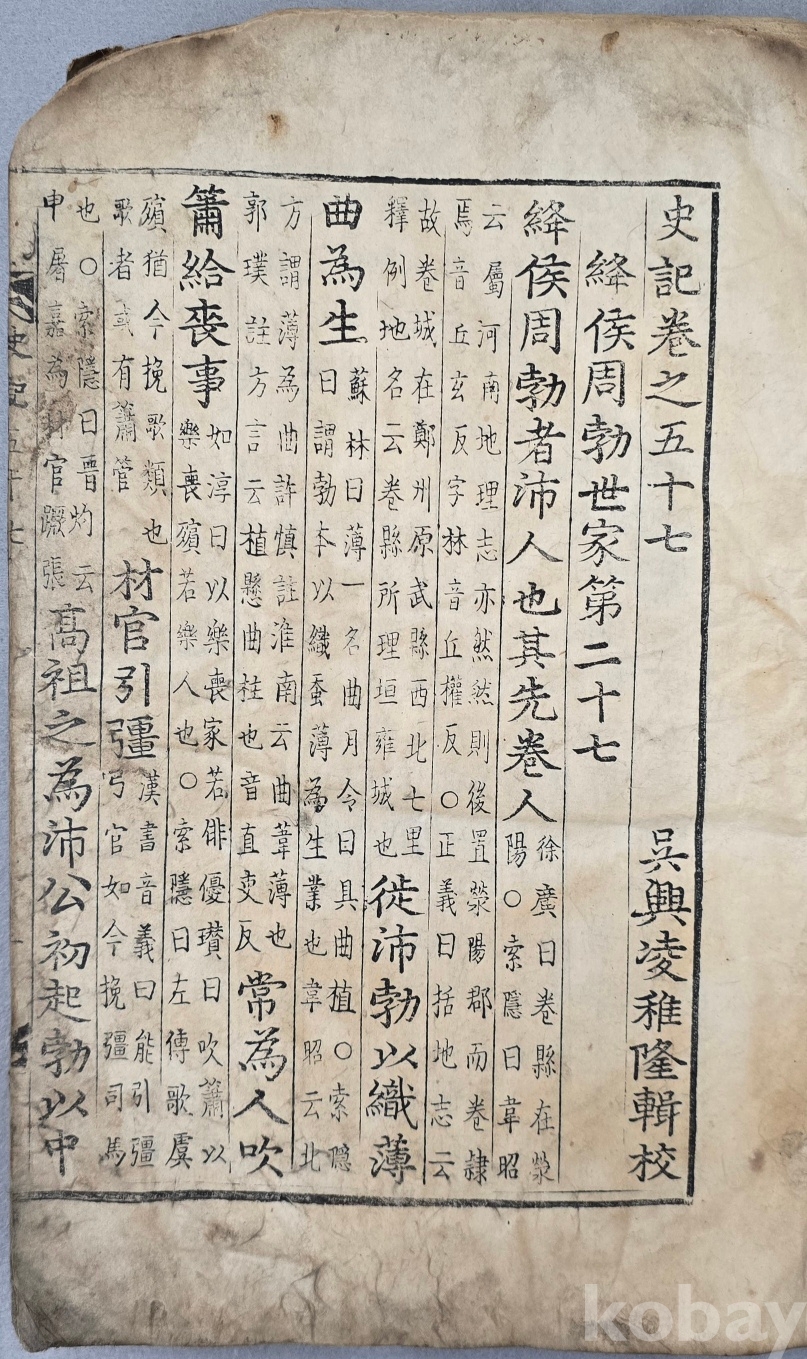 史記卷之五十七　吳興凌稚隆輯校
絳侯周勃世家第二十七
絳侯周勃者沛人也其先卷人
徐廣曰卷縣在滎
陽○索隱曰韋昭
云屬河南地理志亦然然則後置滎陽郡而卷隷
焉音丘玄反字林音丘權反○正義曰括地志云
故卷城在鄭州原武縣西北七里
釋例地名云卷縣所理垣雍城也
徙沛勃以織薄
曲為生
蘇林曰薄一名曲月令曰具曲植○索隱
曰謂勃本以織蚕薄為生業也韋昭云北
方謂薄為曲許慎註淮南云曲葦薄也
郭璞註方言云植懸曲柱也音直吏反
常為人吹
簫給喪事
如淳曰以樂喪家若俳優瓉曰吹簫以
樂喪殯若樂人也○索隱曰左傳歌虞
殯猶今挽歌類也
歌者或有簫管
材官引彊
漢書音義曰能引彊
弓官如今挽彊司馬
也○索隱曰晋灼云
申屠嘉為材官蹶張
高祖之為沛公初起勃以中
史記五十七
kobay